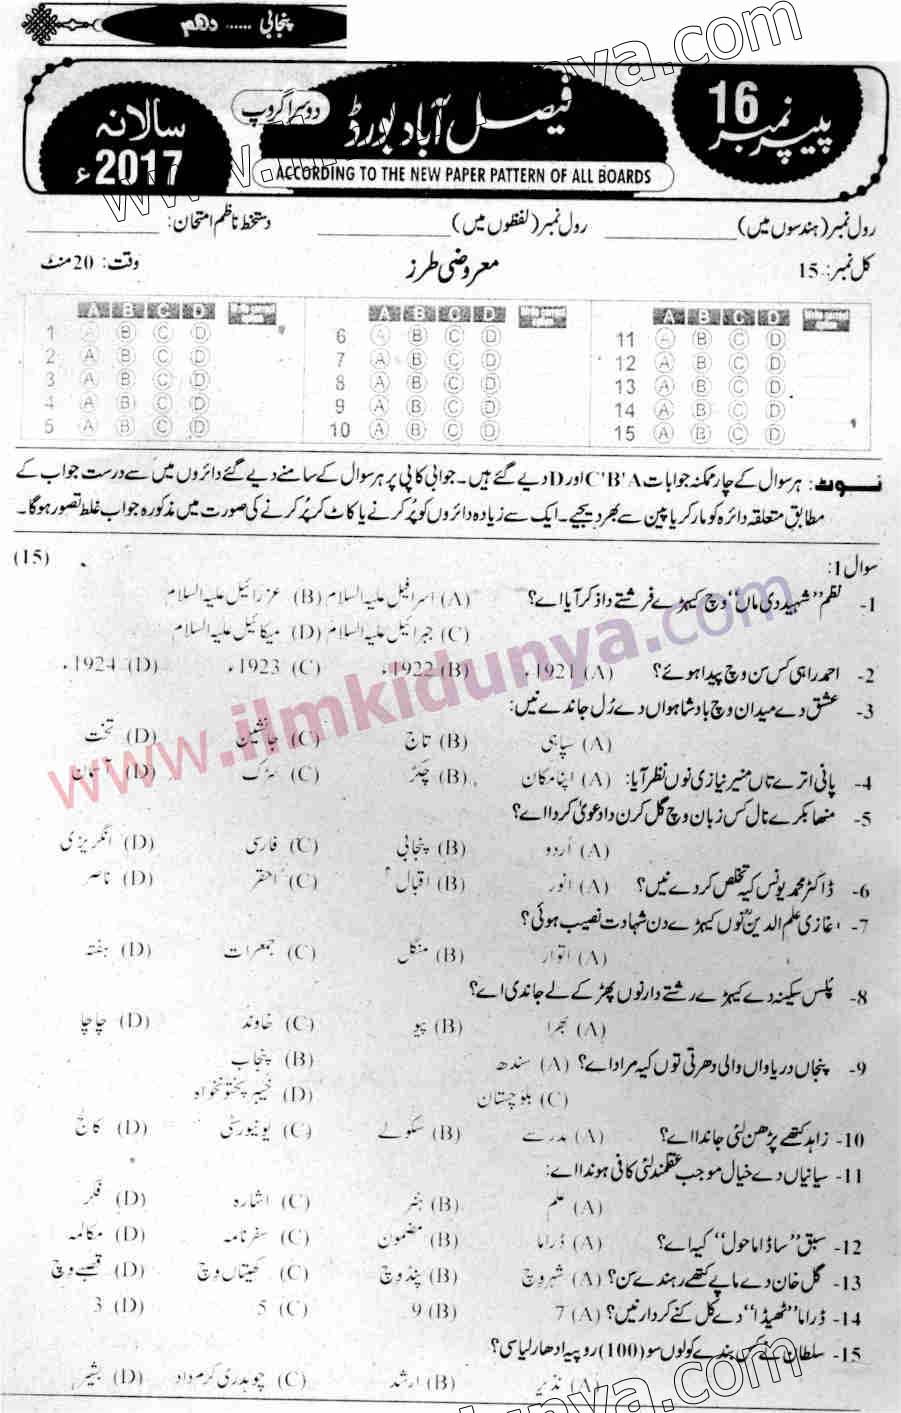 پنجابی ...... دہم
پیپر نمبر 16
فیصل آباد بورڈ
دوسرا گروپ
سالانہ 2017ء
ACCORDING TO THE NEW PAPER PATTERN OF ALL BOARDS
رول نمبر (ہندسوں میں) ____________ رول نمبر (لفظوں میں) ____________ دستخط ناظم امتحان: ____________
کل نمبر: 15 معروضی طرز وقت: 20 منٹ
A B C D Write correct option A B C D Write correct option A B C D Write correct option
1 A B C D 6 A B C D 11 A B C D
2 A B C D 7 A B C D 12 A B C D
3 A B C D 8 A B C D 13 A B C D
4 A B C D 9 A B C D 14 A B C D
5 A B C D 10 A B C D 15 A B C D
نوٹ: ہر سوال کے چار ممکنہ جوابات C'B'A اور D دیے گئے ہیں۔ جوابی کاپی پر ہر سوال کے سامنے دیے گئے دائروں میں سے درست جواب کے
مطابق متعلقہ دائرہ کو مارکر یا پین سے بھر دیجیے۔ ایک سے زیادہ دائروں کو پُر کرنے یا کاٹ کر پُر کرنے کی صورت میں مذکورہ جواب غلط تصور ہوگا۔
سوال 1: (15)
1- نظم "شہید دی ماں" وچ کیہڑے فرشتے دا ذکر آیا اے؟ (A) اسرافیل علیہ السلام (B) عزرائیل علیہ السلام
(C) جبرائیل علیہ السلام (D) میکائیل علیہ السلام
2- احمد راہی کس سن وچ پیدا ہوئے؟ (A) 1921ء (B) 1922ء (C) 1923ء (D) 1924ء
3- عشق دے میدان وچ بادشاہواں دے رُل جاندے نیں:
(A) سپاہی (B) تاج (C) جانشین (D) تخت
4- پانی اترے تاں منیر نیازی نوں نظر آیا: (A) اپنا مکان (B) چھپڑ (C) سڑک (D) آسمان
5- منھا بکرے نال کس زبان وچ گل کرن دا دعویٰ کردا اے؟
(A) اُردو (B) پنجابی (C) فارسی (D) انگریزی
6- ڈاکٹر محمد یونس کیہ تخلص کردے نیں؟ (A) انور (B) اقبال (C) احقر (D) ناصر
7- غازی علم الدینؒ نوں کیہڑے دن شہادت نصیب ہوئی؟
(A) اتوار (B) منگل (C) جمعرات (D) ہفتہ
8- پُلس سکینہ دے کیہڑے رشتے دار نوں پھڑ کے لے جاندی اے؟
(A) بھرا (B) پیو (C) خاوند (D) چاچا
9- پنجاں دریاواں والی دھرتی توں کیہ مراد اے؟ (A) سندھ (B) پنجاب
(C) بلوچستان (D) خیبر پختونخواہ
10- زاہد کتھے پڑھن لئی جاندا اے؟ (A) مدرسے (B) سکولے (C) یونیورسٹی (D) کالج
11- سیانیاں دے خیال موجب عقلمند لئی کافی ہوندا اے:
(A) علم (B) ہنر (C) اشارہ (D) فکر
12- سبق "ساڈا ماحول" کیہ اے؟ (A) ڈراما (B) مضمون (C) سفرنامہ (D) مکالمہ
13- گل خان دے ماپے کتھے رہندے سن؟ (A) شہر وچ (B) پنڈ وچ (C) کھیتاں وچ (D) قصبے وچ
14- ڈراما "ٹھیڈا" دے کل کنے کردار نیں؟ (A) 7 (B) 9 (C) 5 (D) 3
15- سلطان نے کس بندے کولوں سو (100) روپیہ ادھار لیا سی؟
(A) نذیر (B) ارشد (C) چوہدری کرم داد (D) بشیر
www.ilmkidunya.com